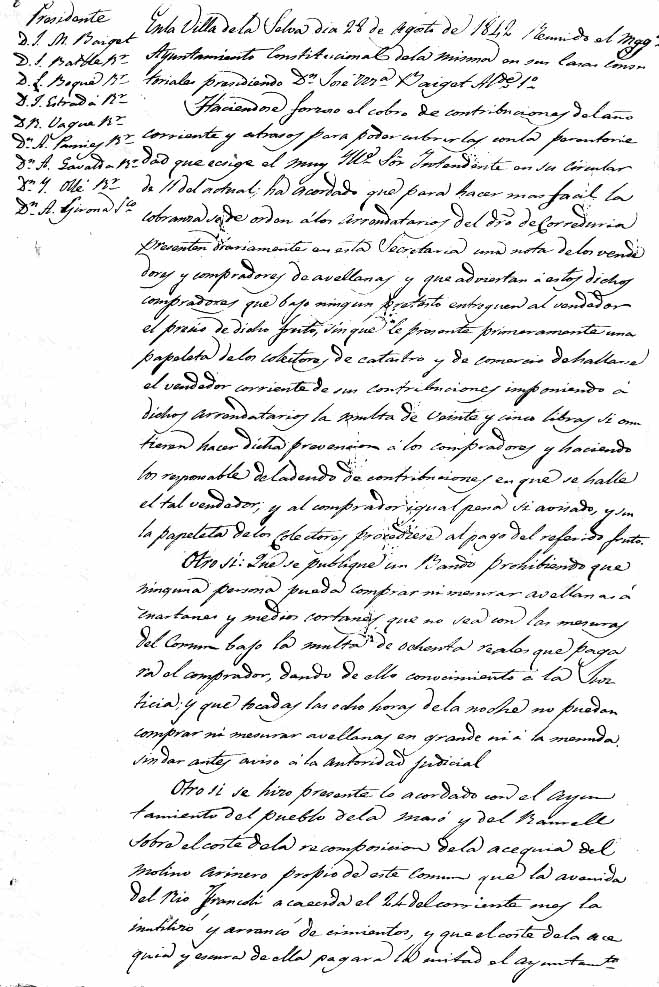 Presidente
D. J. M. Baiget
D. J. Batlle Rr
D. L. Boqué Rr
D. J. Estradá Rr
D. R. Vaque Rr
Dn A. Pamies Rr
Dn A. Gavaldá Rr
Dn Y. Ollé Rr
Dn A. Girona Sco
En la Villa de la Selva dia 28 de Agosto de 1842 Reunido el Magco
Ayuntamiento Constitucional dela misma en sus Casas Consis
toriales presidiendo Dn José Ma Baiget Alde 1o
Haciendose forzoso el cobro de contribuciones del año
corriente y atrasos para poder cubrirlas con la perentorie
dad que ecsige el muy Ille Sor Intendente en su Circular
de 11 del actual; ha acordado que para hacer mas facil la
cobranza se de orden á los arrendatarios del dro de Correduria
presenten diariamente en esta Secretaria una nota de los vende
dores y compradores de avellanas y que adviertan á estos dichos
compradores que bajo ningun pretesto entreguen al vendedor
el precio de dicho fruto, sin que le presente primeramente una
papeleta de los colectores de catastro y de comercio de hallarse
el vendedor corriente de sus contribuciones imponiendo á
dichos arrendatarios la multa de veinte y cinco libras si omi
tieran hacer dicha prevencion á los compradores y haciendo
los responsable del adeudo de contribuciones en que se halle
el tal vendedor, y al comprador igual pena si avisado, y sin
la papeleta de los Colectores procediese al pago del referido fruto.
Otro si: Que se publique un Bando prohibiendo que
ninguna persona pueda comprar ni mesurar avellanas á
cuartanes y medios cortanes que no sea con las mesuras
del Comun bajo la multa de ochenta reales que paga
rá el comprador, dando de ello conocimiento á la Jus
ticia: y que tocadas las ocho horas de la noche no puedan
comprar ni mesurar avellanas en grande ni á la menuda
sin dar antes aviso á la autoridad judicial
Otro si se hizo presente lo acordado con el Ayun
tamiento del pueblo dela Masó y del
sobre el coste dela recomposicion dela acequia del
molino arinero propio de este Comun que la avenida
del Rio Francolí acaecida el 24 del corriente mes la
inutilizó y arrancó de cimientos, y que el coste dela ace
quia y escura de ella pagara la mitad el Ayuntamto